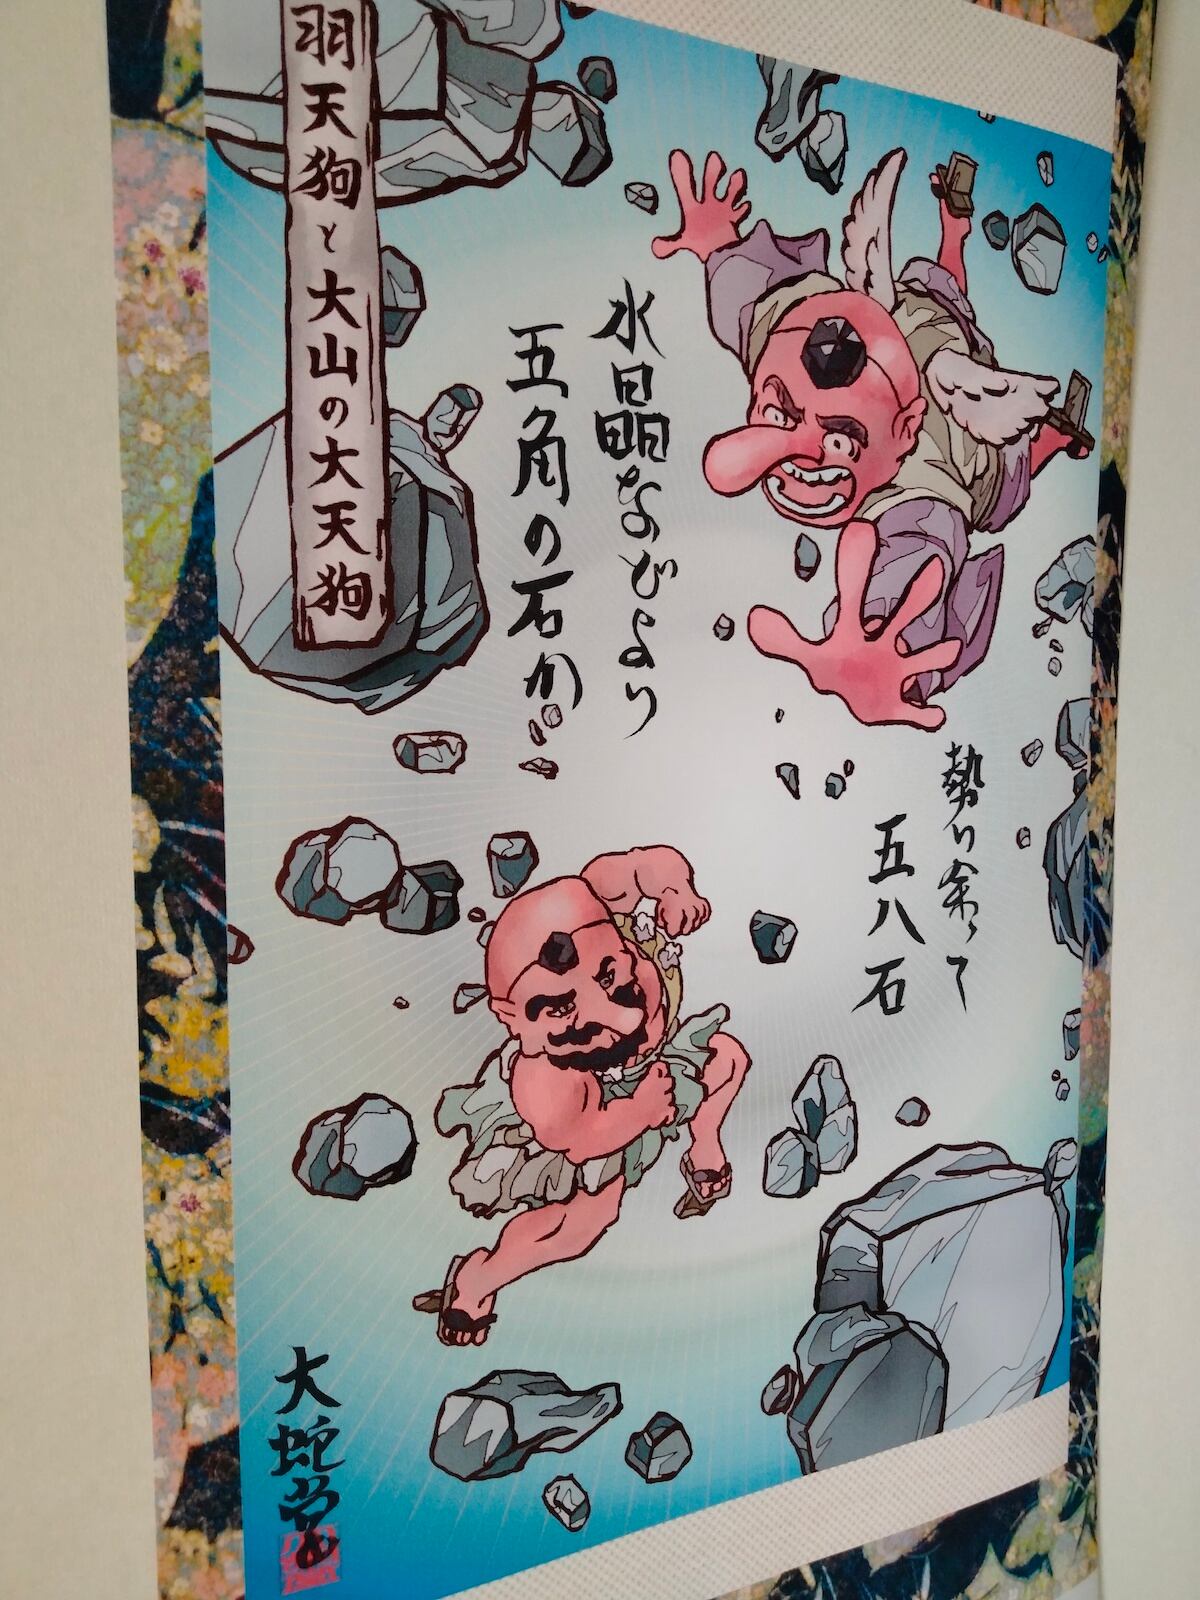 羽天狗と大山の大天狗
水晶などより
五角の石か
勢い余って
五八石
大蛇堂